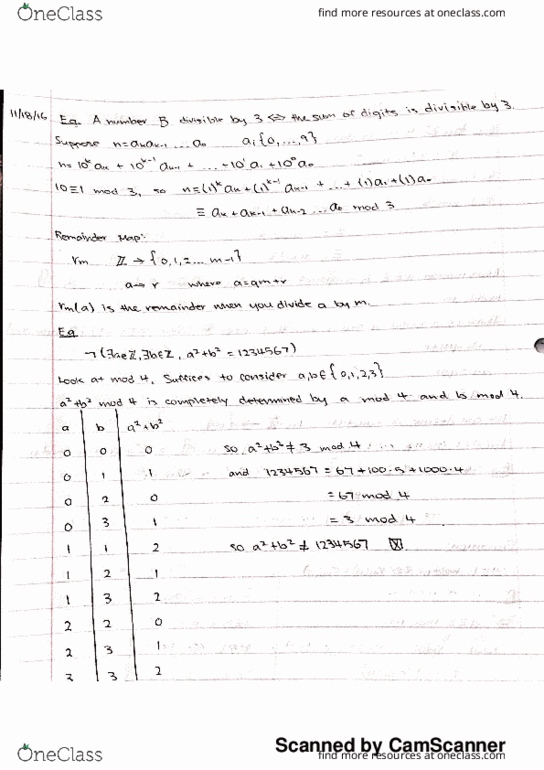 OneClass
find more resources at oneclass.com
11/18/16 Eg. A number B divisible by 3 ⇔ the sum of digits is divisible by 3.
Suppose n=akak-1 ... a0 ai{0,...,9}
n=10^k ak + 10^k-1 ak-1 + ... +10^1 a1 +10^0 a0
10≡1 mod 3, so n≡(1)^k ak+(1)^k-1 ak-1 + ... + (1)a1+(1)a0
≡ ak+ak-1+ak-2 ... a0 mod 3
Remainder Map:
rm ℤ → {0,1,2... m-1}
a→ r where a=qm+r
rm(a) is the remainder when you divide a by m.
Eg
¬(∃a∈ℤ,∃b∈ℤ, a²+b² = 1234567)
Look at mod 4. Suffices to consider a,b∈{0,1,2,3}
a²+b² mod 4 is completely determined by a mod 4 and b mod 4.
a b a²+b²
0 0 0 so a²+b²≠3 mod 4
0 1 1 and 1234567 = 67+100·5+1000·4
0 2 0 = 67 mod 4
0 3 1 = 3 mod 4
1 1 2 so a²+b² ≠ 1234567
1 2 1
1 3 2
2 2 0
2 3 1
3 3 2
Scanned by CamScanner
OneClass
find more resources at oneclass.com